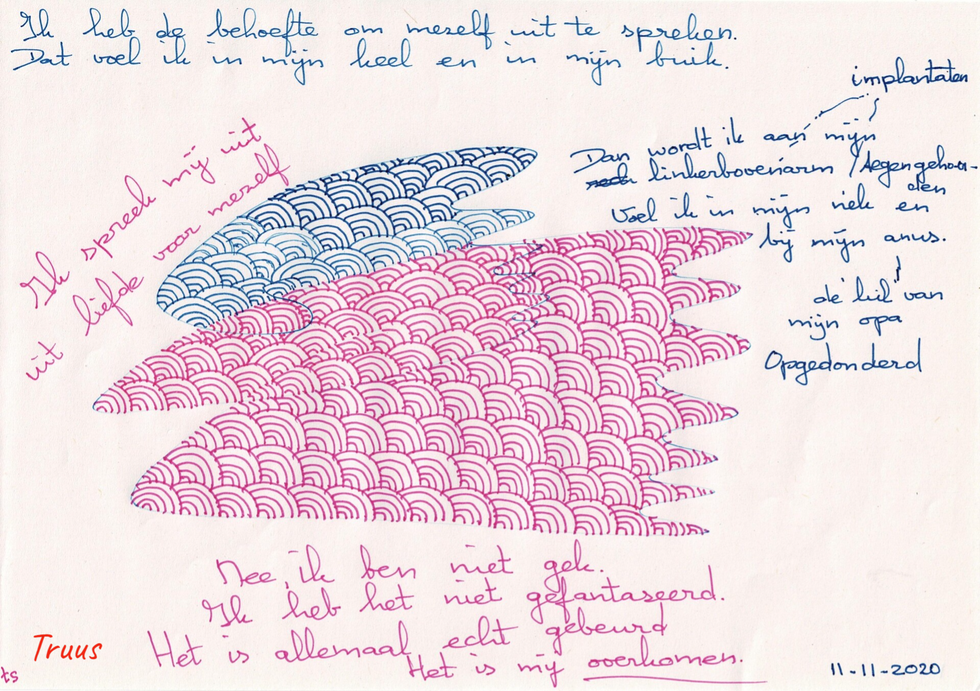 Ik heb de behoefte om meself uit te spreken.
Dat voel ik in mijn keel en in mijn buik.
implantaten
Dan wordt ik aan mijn
linkerbovenarm / tegengehou-
den
Voel ik in mijn nek en
bij mijn anus.
de lul van
mijn opa
Opgedonderd
Ik spreek mij uit
uit liefde voor meself
Nee, ik ben niet gek.
Ik heb het niet gefantaseerd.
Het is allemaal echt gebeurd
Het is mij overkomen.
Truus
ts
11-11-2020